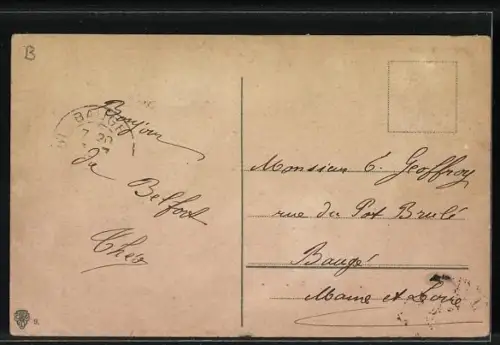 B
BAUGÉ
20
Bonjour
de Belfort
Théo
Monsieur E. Geoffroy
rue du Pot Brulé
Baugé
Maine et Loire
9.